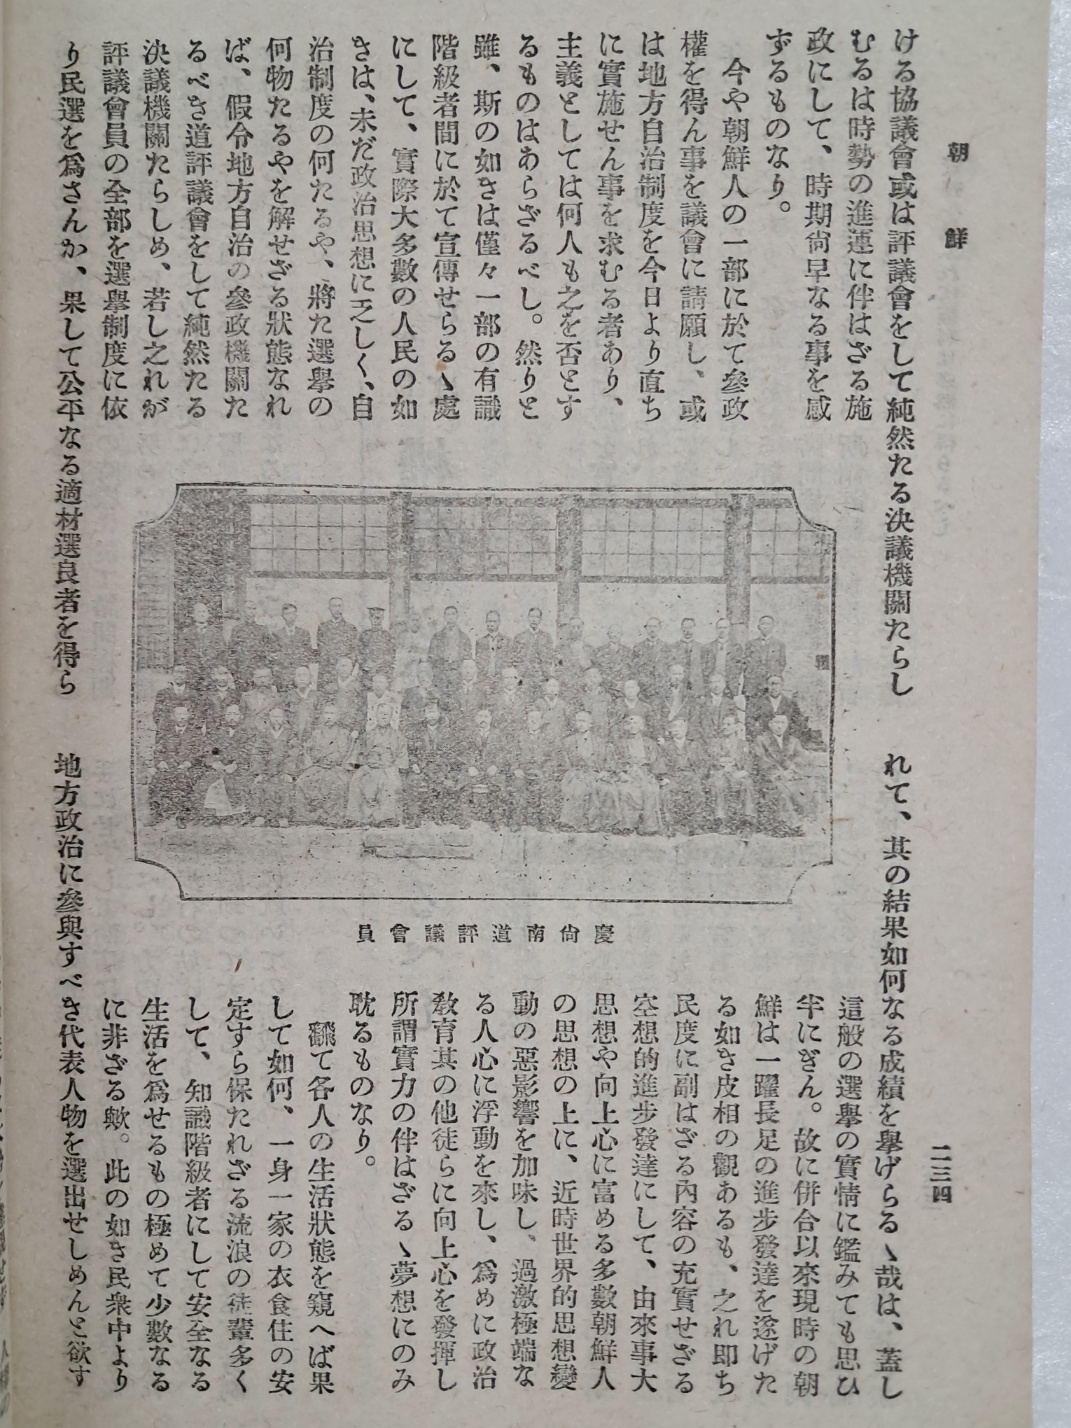 朝鮮
二三四
ける協議會或は評議會をして純然たる決議機關たらし
むるは時勢の進運に伴はざる施
政にして、時期尙早なる事を感
ずるものなり。
今や朝鮮人の一部に於て參政
權を得ん事を議會に請願し、或
は地方自治制度を今日より直ち
に實施せん事を求むる者あり、
主義としては何人も之を否とす
るものはあらざるべし。然りと
雖、斯の如きは僅々一部の有識
階級者間に於て宣傳せらるゝ處
にして、實際大多數の人民の如
きは、未だ政治思想に乏しく、自
治制度の何たるや、將た選擧の
何物たるやを解せざる狀態なれ
ば、假令地方自治の參政機關た
るべき道評議會をして純然たる
決議機關たらしめ、若し之れが
評議會員の全部を選擧制度に依
り民選を爲さんか、果して公平なる適材選良者を得ら
慶尙南道評議會員
れて、其の結果如何なる成績を擧げらるゝ哉は、蓋し
這般の選擧の實情に鑑みても思ひ
半にぎん。故に併合以來現時の朝
鮮は一躍長足の進步發達を遂げた
る如き皮相の觀あるも、之れ即ち
民度に副はざる內容の充實せざる
空想的進步發達にして、由來事大
思想や向上心に富める多數朝鮮人
の思想の上に、近時世界的思想變
動の惡影響を加味し、過激極端な
る人心に浮動を來し、爲めに政治
敎育其の他徒らに向上心を發揮し
所謂實力の伴はざるゝ夢想にのみ
耽るものなり。
飜て各人の生活狀態を窺へば果
して如何、一身一家の衣食住の安
定すら保たれざる流浪の徒輩多く
して、知識階級者にして安全なる
生活を爲せるもの極めて少數なる
に非ざる歟。此の如き民衆中より
地方政治に參與すべき代表人物を選出せしめんと欲す